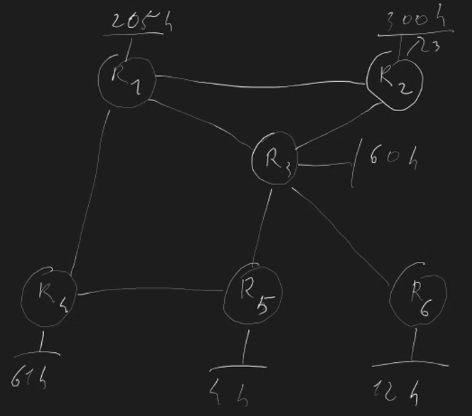 205h
300h
R1
R2
23
R3
60h
R4
R5
R6
61h
4h
12h